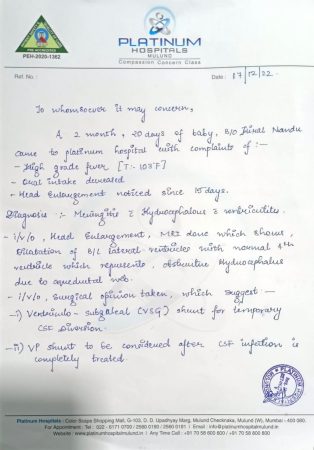 PLATINUM
HOSPITALS
MULUND
Compassion Concern Class
PRE ACCREDITED
PEH-2020-1362
Ref. No. :
Date : 17/12/22
To whomsoever it may concern,
A 2 month, 20 days of baby, B/O Nandu
came to platinum hospital with complaints of :-
- High grade fever [T:- 103°F]
- Oral intake decreased
- Head Enlargement noticed since 15 days.
Diagnosis :- Meningitis c̄ Hydrocephalous c̄ ventriculitis.
- i/v/o, Head Enlargement, MRI done which shows,
Dilatation of B/L lateral ventricles with normal 4th
ventricle which represents, obstructive Hydrocephalus
due to aqueductal web.
- i/v/o, Surgical opinion taken, which suggest -
- i) Ventriculo - Subgaleal (VSG) shunt for temporary
CSF Diversion.
- ii) VP shunt to be considered after CSF infection is
completely treated.
PLATINUM
Platinum Hospitals : Color Scape Shopping Mall, G-103, D. D. Upadhyay Marg, Mulund Checknaka, Mulund (W), Mumbai - 400 080.
For Appointment : Tel : 022 - 6171 0700 / 2560 0190 / 2560 0191 I Email : info@platinumhospitalmulund.in
Website : www.platinumhospitalmulund.in I Any Time Call : +91 70 58 600 600 / +91 70 58 800 600